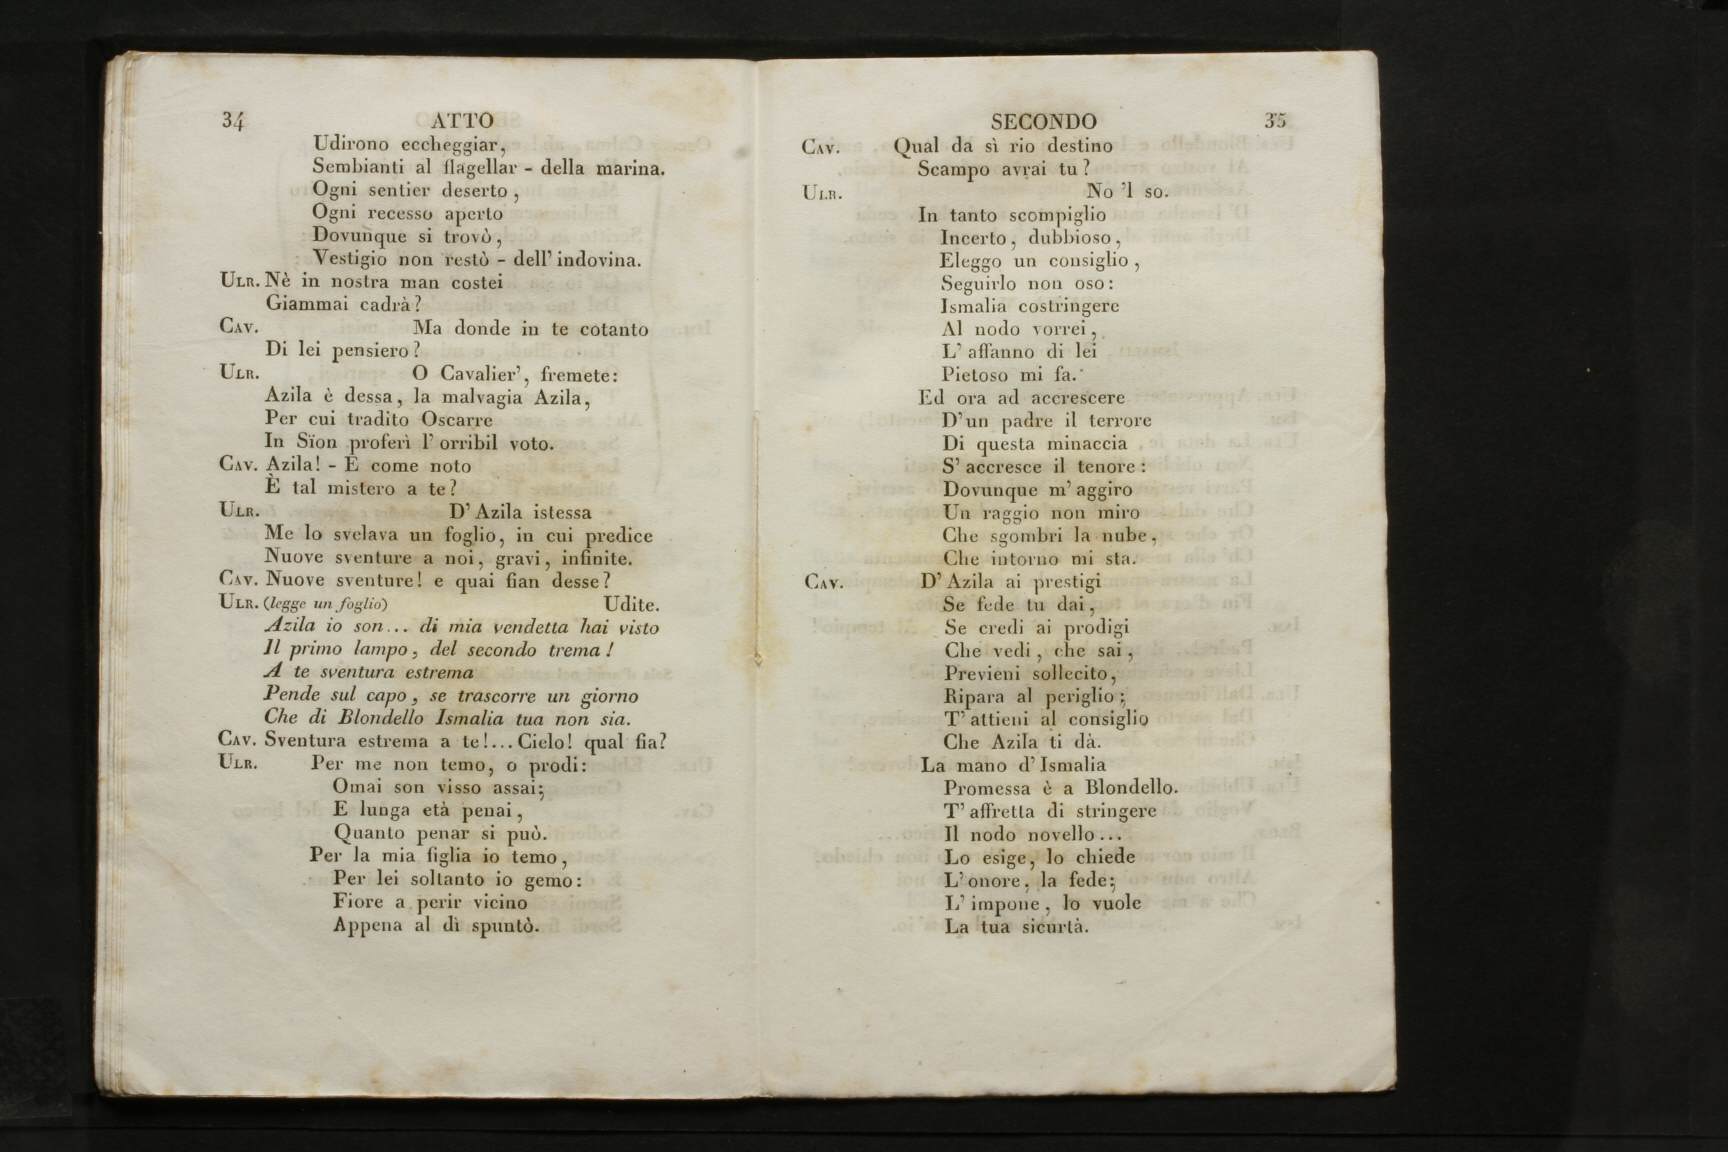 34 ATTO
Udirono eccheggiar,
Sembianti al flagellar - della marina.
Ogni sentier deserto,
Ogni recesso aperto
Dovunque si trovò,
Vestigio non restò - dell' indovina.
ULR. Nè in nostra man costei
Giammai cadrà?
CAV. Ma donde in te cotanto
Di lei pensiero?
ULR. O Cavalier', fremete:
Azila è dessa, la malvagia Azila,
Per cui tradito Oscarre
In Sïon proferì l' orribil voto.
CAV. Azila! - E come noto
È tal mistero a te?
ULR. D' Azila istessa
Me lo svelava un foglio, in cui predice
Nuove sventure a noi, gravi, infinite.
CAV. Nuove sventure! e quai fian desse?
ULR. (legge un foglio) Udite.
Azila io son... di mia vendetta hai visto
Il primo lampo, del secondo trema!
A te sventura estrema
Pende sul capo, se trascorre un giorno
Che di Blondello Ismalia tua non sia.
CAV. Sventura estrema a te!... Cielo! qual fia?
ULR. Per me non temo, o prodi:
Omai son visso assai;
E lunga età penai,
Quanto penar si può.
Per la mia figlia io temo,
Per lei soltanto io gemo:
Fiore a perir vicino
Appena al dì spuntò.
SECONDO 35
CAV. Qual da sì rio destino
Scampo avrai tu?
ULR. No 'l so.
In tanto scompiglio
Incerto, dubbioso,
Eleggo un consiglio,
Seguirlo non oso:
Ismalia costringere
Al nodo vorrei,
L' affanno di lei
Pietoso mi fa.
Ed ora ad accrescere
D' un padre il terrore
Di questa minaccia
S' accresce il tenore:
Dovunque m' aggiro
Un raggio non miro
Che sgombri la nube,
Che intorno mi sta.
CAV. D' Azila ai prestigi
Se fede tu dai,
Se credi ai prodigi
Che vedi, che sai,
Previeni sollecito,
Ripara al periglio;
T' attieni al consiglio
Che Azila ti dà.
La mano d' Ismalia
Promessa è a Blondello.
T' affretta di stringere
Il nodo novello...
Lo esige, lo chiede
L' onore, la fede;
L' impone, lo vuole
La tua sicurtà.